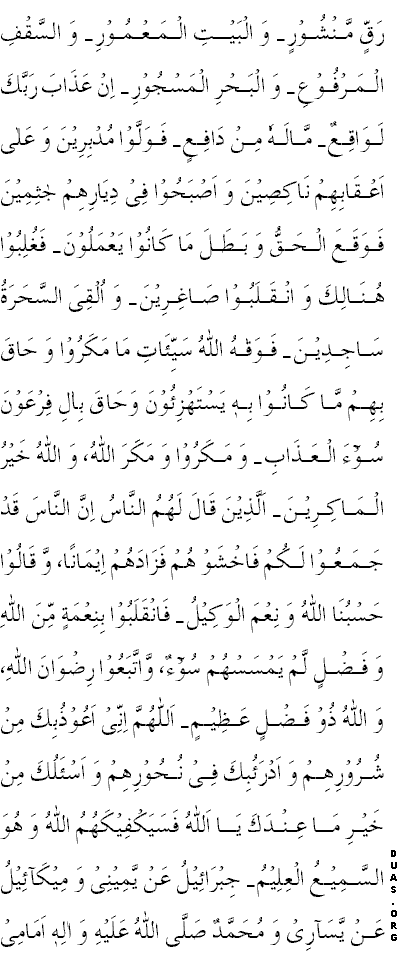 رَقٍّ مَّنْشُوْرٍ۔ وَ الْبَيْتِ الْمَعْمُوْرِ۔ وَ السَّقْفِ
الْمَرْفُوْعِ۔ وَ الْبَحْرِ الْمَسْجُوْرِ۔ اِنْ عَذَابَ رَبَّكَ
لَوَاقِعٌ۔ مَّالَهٗ مِنْ دَافِعٍ۔ فَوَلَّوْا مُدْبِرِيْنَ وَ عَلٰى
اَعْقَابِهِمْ نَاكِصِيْنَ وَ اَصْبَحُوْا فِىْ دِيَارِهِمْ جٰثِمِيْنَ
فَوَقَعَ الْحَقُّ وَ بَطَلَ مَا كَانُوْا يَعْمَلُوْنَ۔ فَغُلِبُوْا
هُنَالِكَ وَ انْقَلَبُوْا صَاغِرِيْنَ۔ وَ اُلْقِىَ السَّحَرَةُ
سَاجِدِيْنَ۔ فَوَقٰهُ اللهُ سَيِّئَاتِ مَا مَكَرُوْا وَ حَاقَ
بِهِمْ مَّا كَانُوْا بِهٖ يَسْتَهْزِئُوْنَ وَحَاقَ بِالِ فِرْعَوْنَ
سُوْٓءَ الْعَذَابِ۔ وَ مَكَرُوْا وَ مَكَرَ اللهُ، وَ اللهُ خَيْرُ
الْمَاكِرِيْنَ۔ اَلَّذِيْنَ قَالَ لَهُمُ النَّاسُ اِنَّ النَّاسَ قَدْ
جَمَعُوْا لَكُمْ فَاخْشَوْ هُمْ فَزَادَهُمْ اِيْمَانًا، وَّ قَالُوْا
حَسْبُنَا اللهُ وَ نِعْمَ الْوَكِيْلُ۔ فَانْقَلَبُوْا بِنِعْمَةٍ مِّنَ اللهِ
وَ فَضْلٍ لَّمْ يَمْسَسْهُمْ سُوْٓءٌ، وَّاتَّبَعُوْا رِضْوَانَ اللهِ،
وَ اللهُ ذُوْ فَضْلٍ عَظِيْمٍ۔ اَللّٰهُمَّ اِنِّىْ اَعُوْذُبِكَ مِنْ
شُرُوْرِهِمْ وَ اَدْرَئُبِكَ فِىْ نُحُوْرِهِمْ وَ اَسْئَلُكَ مِنْ
خَيْرِ مَا عِنْدَكَ يَا اَللهُ فَسَيَكْفِيْكَهُمُ اللهُ وَ هُوَ
السَّمِيْعُ الْعِلِيْمُ۔ جِبْرَائِيْلُ عَنْ يَّمِيْنِىْ وَ مِيْكَآئِيْلُ
عَنْ يَّسَآرِىْ وَ مُحَمَّدٌ صَلَّى اللهُ عَلَيْهِ وَ الِهٖ اَمَامِىْ
DUAS.ORG